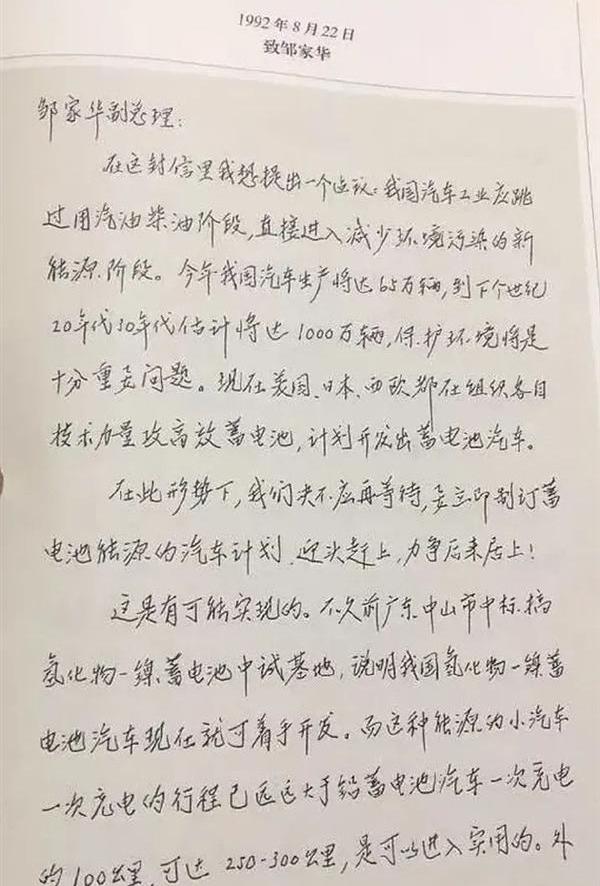 1992年8月22日
致邹家华
邹家华副总理：
在这封信里我想提出一个建议：我国汽车工业应跳
过用汽油柴油阶段，直接进入减少环境污染的新
能源阶段。今年我国汽车生产将达65万辆，到下个世纪
20年代30年代估计将达1000万辆，保护环境将是
十分重要问题。现在美国、日本、西欧都在组织各自
技术力量攻高效蓄电池，计划开发出蓄电池汽车。
在此形势下，我们决不应再等待，要立即制订蓄
电池能源的汽车计划，迎头赶上，力争后来居上！
这是有可能实现的。不久前广东中山市中标搞
氢化物－镍蓄电池中试基地，说明我国氢化物－镍蓄
电池汽车现在就可着手开发。而这种能源的小汽车
一次充电的行程已远远大于铅蓄电池汽车一次充电
的100公里，可达250-300公里，是可以进入实用的。外